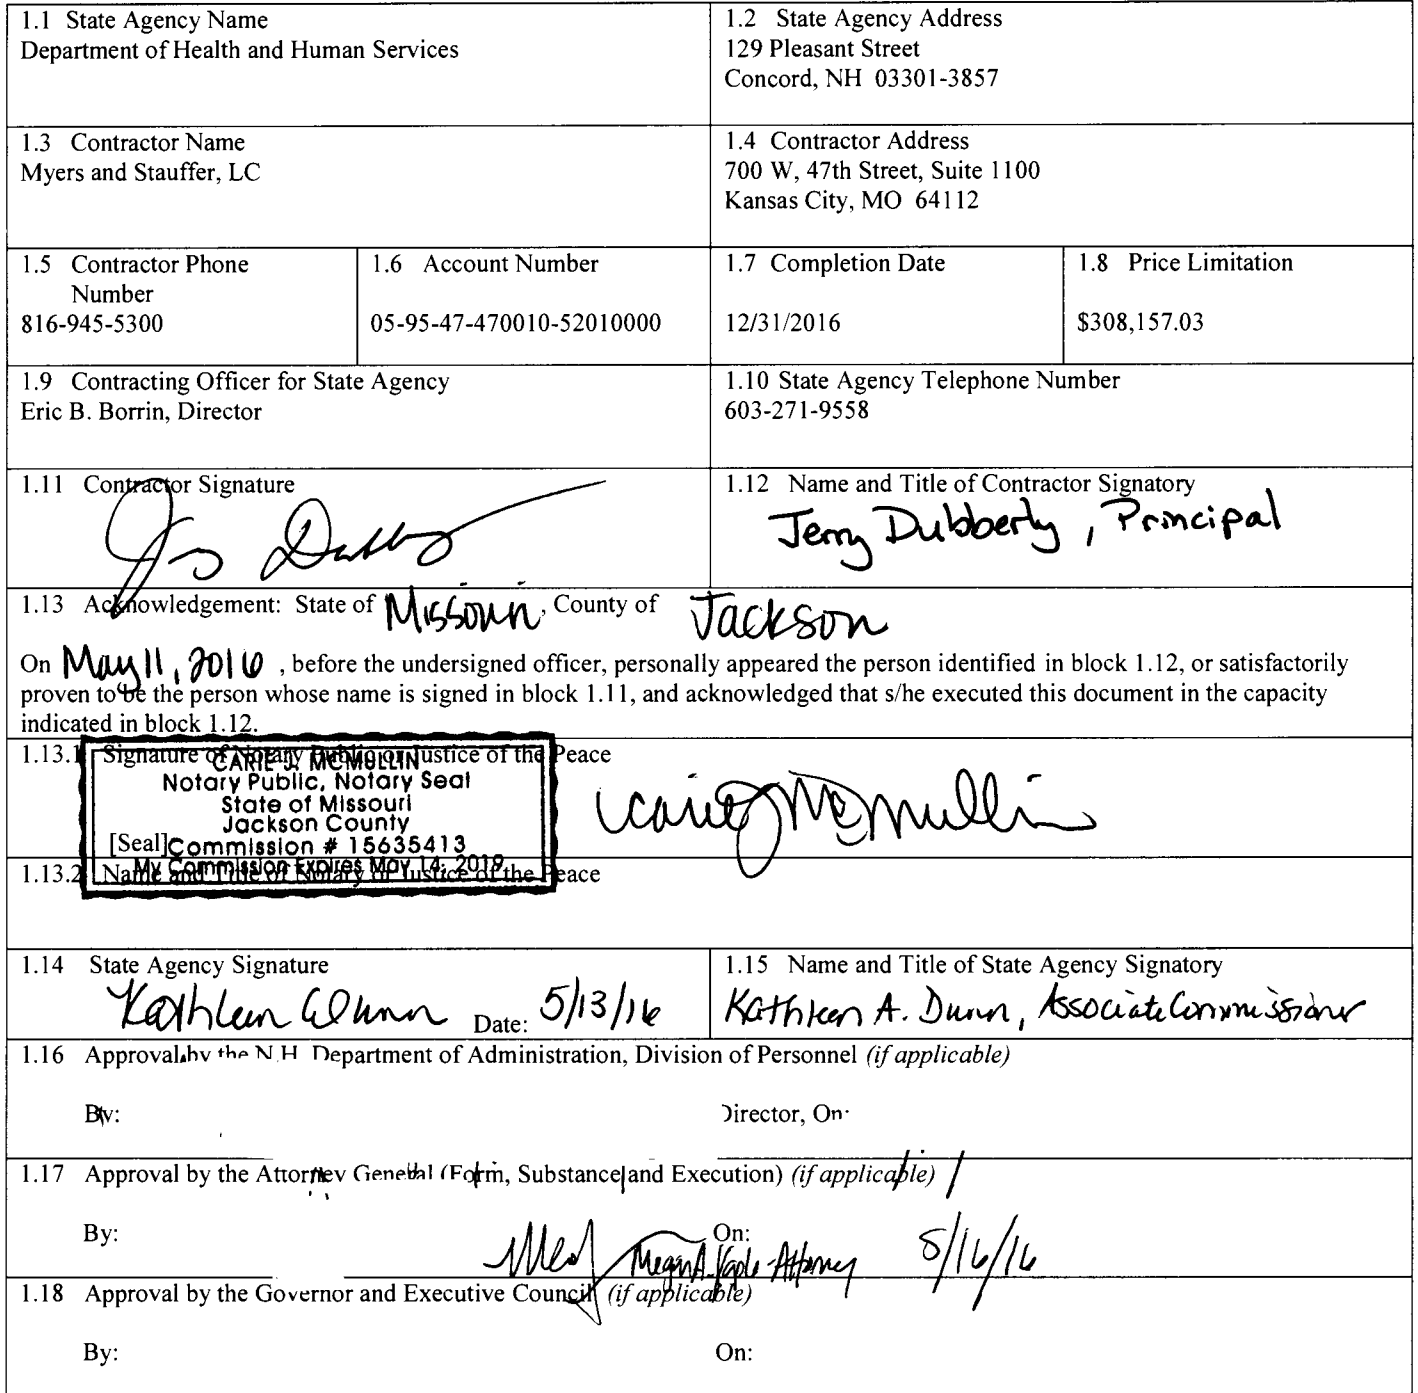 1.1 State Agency Name
Department of Health and Human Services
1.2 State Agency Address
129 Pleasant Street
Concord, NH 03301-3857
1.3 Contractor Name
Myers and Stauffer, LC
1.4 Contractor Address
700 W, 47th Street, Suite 1100
Kansas City, MO 64112
1.5 Contractor Phone
Number
816-945-5300
1.6 Account Number
05-95-47-470010-52010000
1.7 Completion Date
12/31/2016
1.8 Price Limitation
$308,157.03
1.9 Contracting Officer for State Agency
Eric B. Borrin, Director
1.10 State Agency Telephone Number
603-271-9558
1.11 Contractor Signature
1.12 Name and Title of Contractor Signatory
Jerry Dubberly, Principal
1.13 Acknowledgement: State of Missouri, County of Jackson
On May 11, 2016, before the undersigned officer, personally appeared the person identified in block 1.12, or satisfactorily
proven to be the person whose name is signed in block 1.11, and acknowledged that s/he executed this document in the capacity
indicated in block 1.12.
1.13.1 Signature of Notary Public or Justice of the Peace
CARIE J. MCMULLIN
Notary Public, Notary Seal
State of Missouri
Jackson County
[Seal] Commission # 15635413
My Commission Expires May 14, 2019
Carie J McMullin
1.13.2 Name and Title of Notary or Justice of the Peace
1.14 State Agency Signature
Kathleen A Dunn Date: 5/13/16
1.15 Name and Title of State Agency Signatory
Kathleen A. Dunn, Associate Commissioner
1.16 Approval by the N.H. Department of Administration, Division of Personnel (if applicable)
By: Director, On:
1.17 Approval by the Attorney General (Form, Substance and Execution) (if applicable)
By: On:
Megan A. - Attorney 5/16/16
1.18 Approval by the Governor and Executive Council (if applicable)
By: On: